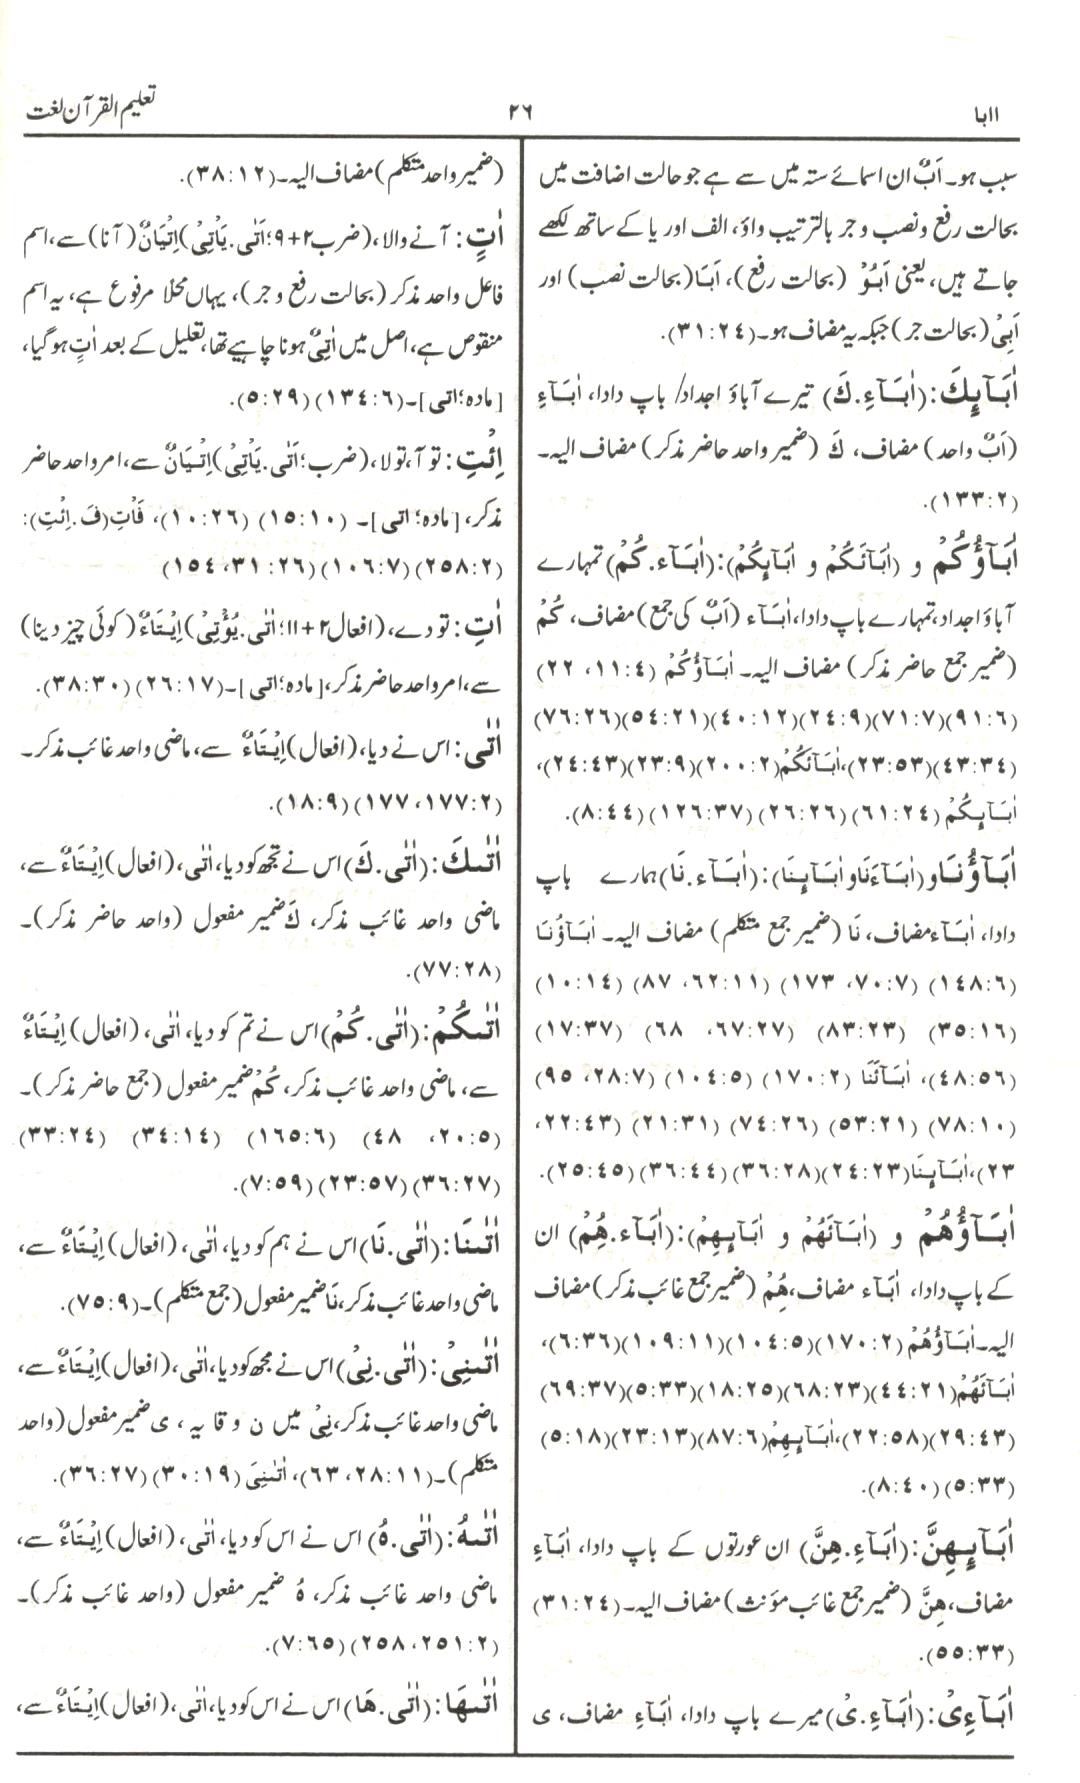 ااابا
٢٦
تعلیم القرآن لغت
سبب ہو۔ اَبٌ ان اسمائے ستہ میں سے ہے جو حالت اضافت میں
بحالت رفع ونصب وجر بالترتیب واؤ، الف اور یا کے ساتھ لکھے
جاتے ہیں، یعنی اَبُوْ (بحالت رفع)، اَبَا (بحالت نصب) اور
اَبِیْ (بحالت جر) جبکہ یہ مضاف ہو۔ (٣١:٢٤).
اٰبَآىِٕكَ: (اٰبَآءِ.كَ) تیرے آباؤ اجداد/ باپ دادا، اٰبَآءِ
(اَبٌ واحد) مضاف، كَ (ضمیر واحد حاضر مذکر) مضاف الیہ۔
(١٣٣:٢).
اٰبَآؤُكُمْ و (اٰبَآئَكُمْ و اٰبَآىِٕكُمْ): (اٰبَآء.كُمْ) تمہارے
آباؤ اجداد، تمہارے باپ دادا، اٰبَآء (اَبٌ کی جمع) مضاف، كُمْ
(ضمیر جمع حاضر مذکر) مضاف الیہ۔ اٰبَآؤُكُمْ (١١:٤، ٢٢)
(٩١:٦)(٧١:٧)(٢٤:٩)(٤٠:١٢)(٥٤:٢١)(٧٦:٢٦)
(٤٣:٣٤)(٢٣:٥٣)، اٰبَآئَكُمْ (٢٠٠:٢)(٢٣:٩)(٢٤:٤٣)،
اٰبَآىِٕكُمْ (٦١:٢٤) (٢٦:٢٦) (١٢٦:٣٧) (٨:٤٤).
اٰبَآؤُنَا و (اٰبَآءَنَا و اٰبَآىِٕنَا): (اٰبَآء.نَا) ہمارے باپ
دادا، اٰبَآء مضاف، نَا (ضمیر جمع متکلم) مضاف الیہ۔ اٰبَآؤُنَا
(١٤٨:٦) (٧٠:٧، ١٧٣) (٦٢:١١، ٨٧) (١٠:١٤)
(٣٥:١٦) (٨٣:٢٣) (٦٧:٢٧، ٦٨) (١٧:٣٧)
(٤٨:٥٦)، اٰبَآئَنَا (١٧٠:٢) (١٠٤:٥) (٢٨:٧، ٩٥)
(٧٨:١٠) (٥٣:٢١) (٧٤:٢٦) (٢١:٣١) (٢٢:٤٣،
٢٣)، اٰبَآىِٕنَا (٢٤:٢٣) (٣٦:٢٨) (٣٦:٤٤) (٢٥:٤٥).
اٰبَآؤُهُمْ و (اٰبَآئَهُمْ و اٰبَآىِٕهِمْ): (اٰبَآء.هِمْ) ان
کے باپ دادا، اٰبَآء مضاف، هِمْ (ضمیر جمع غائب مذکر) مضاف
الیہ۔ اٰبَآؤُهُمْ (١٧٠:٢)(١٠٤:٥)(١٠٩:١١)(٦:٣٦)،
اٰبَآئَهُمْ (٤٤:٢١)(٦٨:٢٣)(١٨:٢٥)(٥:٣٣)(٦٩:٣٧)
(٢٩:٤٣)(٢٢:٥٨)، اٰبَآىِٕهِمْ (٨٧:٦)(٢٣:١٣)(٥:١٨)
(٥:٣٣) (٨:٤٠).
اٰبَآىِٕهِنَّ: (اٰبَآءِ.هِنَّ) ان عورتوں کے باپ دادا، اٰبَآءِ
مضاف، هِنَّ (ضمیر جمع غائب مؤنث) مضاف الیہ۔ (٣١:٢٤)
(٥٥:٣٣).
اٰبَآءِیْ: (اٰبَآءِ.یْ) میرے باپ دادا، اٰبَآءِ مضاف، ی
(ضمیر واحد متکلم) مضاف الیہ۔ (٣٨:١٢).
اٰتٍ: آنے والا، (ضرب ٢+٩؛ اَتٰی.یَأْتِیْ) اِتْیَانٌ (آنا) سے، اسم
فاعل واحد مذکر (بحالت رفع وجر)، یہاں محلا مرفوع ہے، یہ اسم
منقوص ہے، اصل میں اٰتِیٌ ہونا چاہیے تھا، تعلیل کے بعد اٰتٍ ہو گیا،
[مادہ؛ اتی]۔ (١٣٤:٦) (٥:٢٩).
اِئْتِ: تو آ، تو لا، (ضرب؛ اَتٰی.یَأْتِیْ) اِتْیَانٌ سے، امر واحد حاضر
مذکر، [مادہ؛ اتی]۔ (١٥:١٠) (١٠:٢٦)، فَاْتِ (فَ.اِئْتِ):
(٢٥٨:٢) (١٠٦:٧) (٣١:٢٦، ١٥٤)
اٰتِ: تو دے، (افعال ٢+١١؛ اٰتٰی.یُؤْتِیْ) اِیْتَاءٌ (کوئی چیز دینا)
سے، امر واحد حاضر مذکر، [مادہ؛ اتی]۔ (٢٦:١٧) (٣٨:٣٠).
اٰتٰی: اس نے دیا، (افعال) اِیْتَاءٌ سے، ماضی واحد غائب مذکر۔
(١٧٧:٢، ١٧٧) (١٨:٩).
اٰتٰىكَ: (اٰتٰی.كَ) اس نے تجھ کو دیا، اٰتٰی، (افعال) اِیْتَاءٌ سے،
ماضی واحد غائب مذکر، كَ ضمیر مفعول (واحد حاضر مذکر)۔
(٧٧:٢٨).
اٰتٰىكُمْ: (اٰتٰی.كُمْ) اس نے تم کو دیا، اٰتٰی، (افعال) اِیْتَاءٌ
سے، ماضی واحد غائب مذکر، كُمْ ضمیر مفعول (جمع حاضر مذکر)۔
(٢٠:٥، ٤٨) (١٦٥:٦) (٣٤:١٤) (٣٣:٢٤)
(٣٦:٢٧) (٢٣:٥٧) (٧:٥٩).
اٰتٰىنَا: (اٰتٰی.نَا) اس نے ہم کو دیا، اٰتٰی، (افعال) اِیْتَاءٌ سے،
ماضی واحد غائب مذکر، نَا ضمیر مفعول (جمع متکلم)۔ (٧٥:٩).
اٰتٰىنِیْ: (اٰتٰی.نِیْ) اس نے مجھ کو دیا، اٰتٰی، (افعال) اِیْتَاءٌ سے،
ماضی واحد غائب مذکر، نِیْ میں ن وقایہ، ی ضمیر مفعول (واحد
متکلم)۔ (٢٨:١١، ٦٣)، اٰتٰىنِیَ (٣٠:١٩) (٣٦:٢٧).
اٰتٰىهُ: (اٰتٰی.هُ) اس نے اس کو دیا، اٰتٰی، (افعال) اِیْتَاءٌ سے،
ماضی واحد غائب مذکر، هُ ضمیر مفعول (واحد غائب مذکر)۔
(٢٥١:٢، ٢٥٨) (٧:٦٥).
اٰتٰىهَا: (اٰتٰی.هَا) اس نے اس کو دیا، اٰتٰی، (افعال) اِیْتَاءٌ سے،